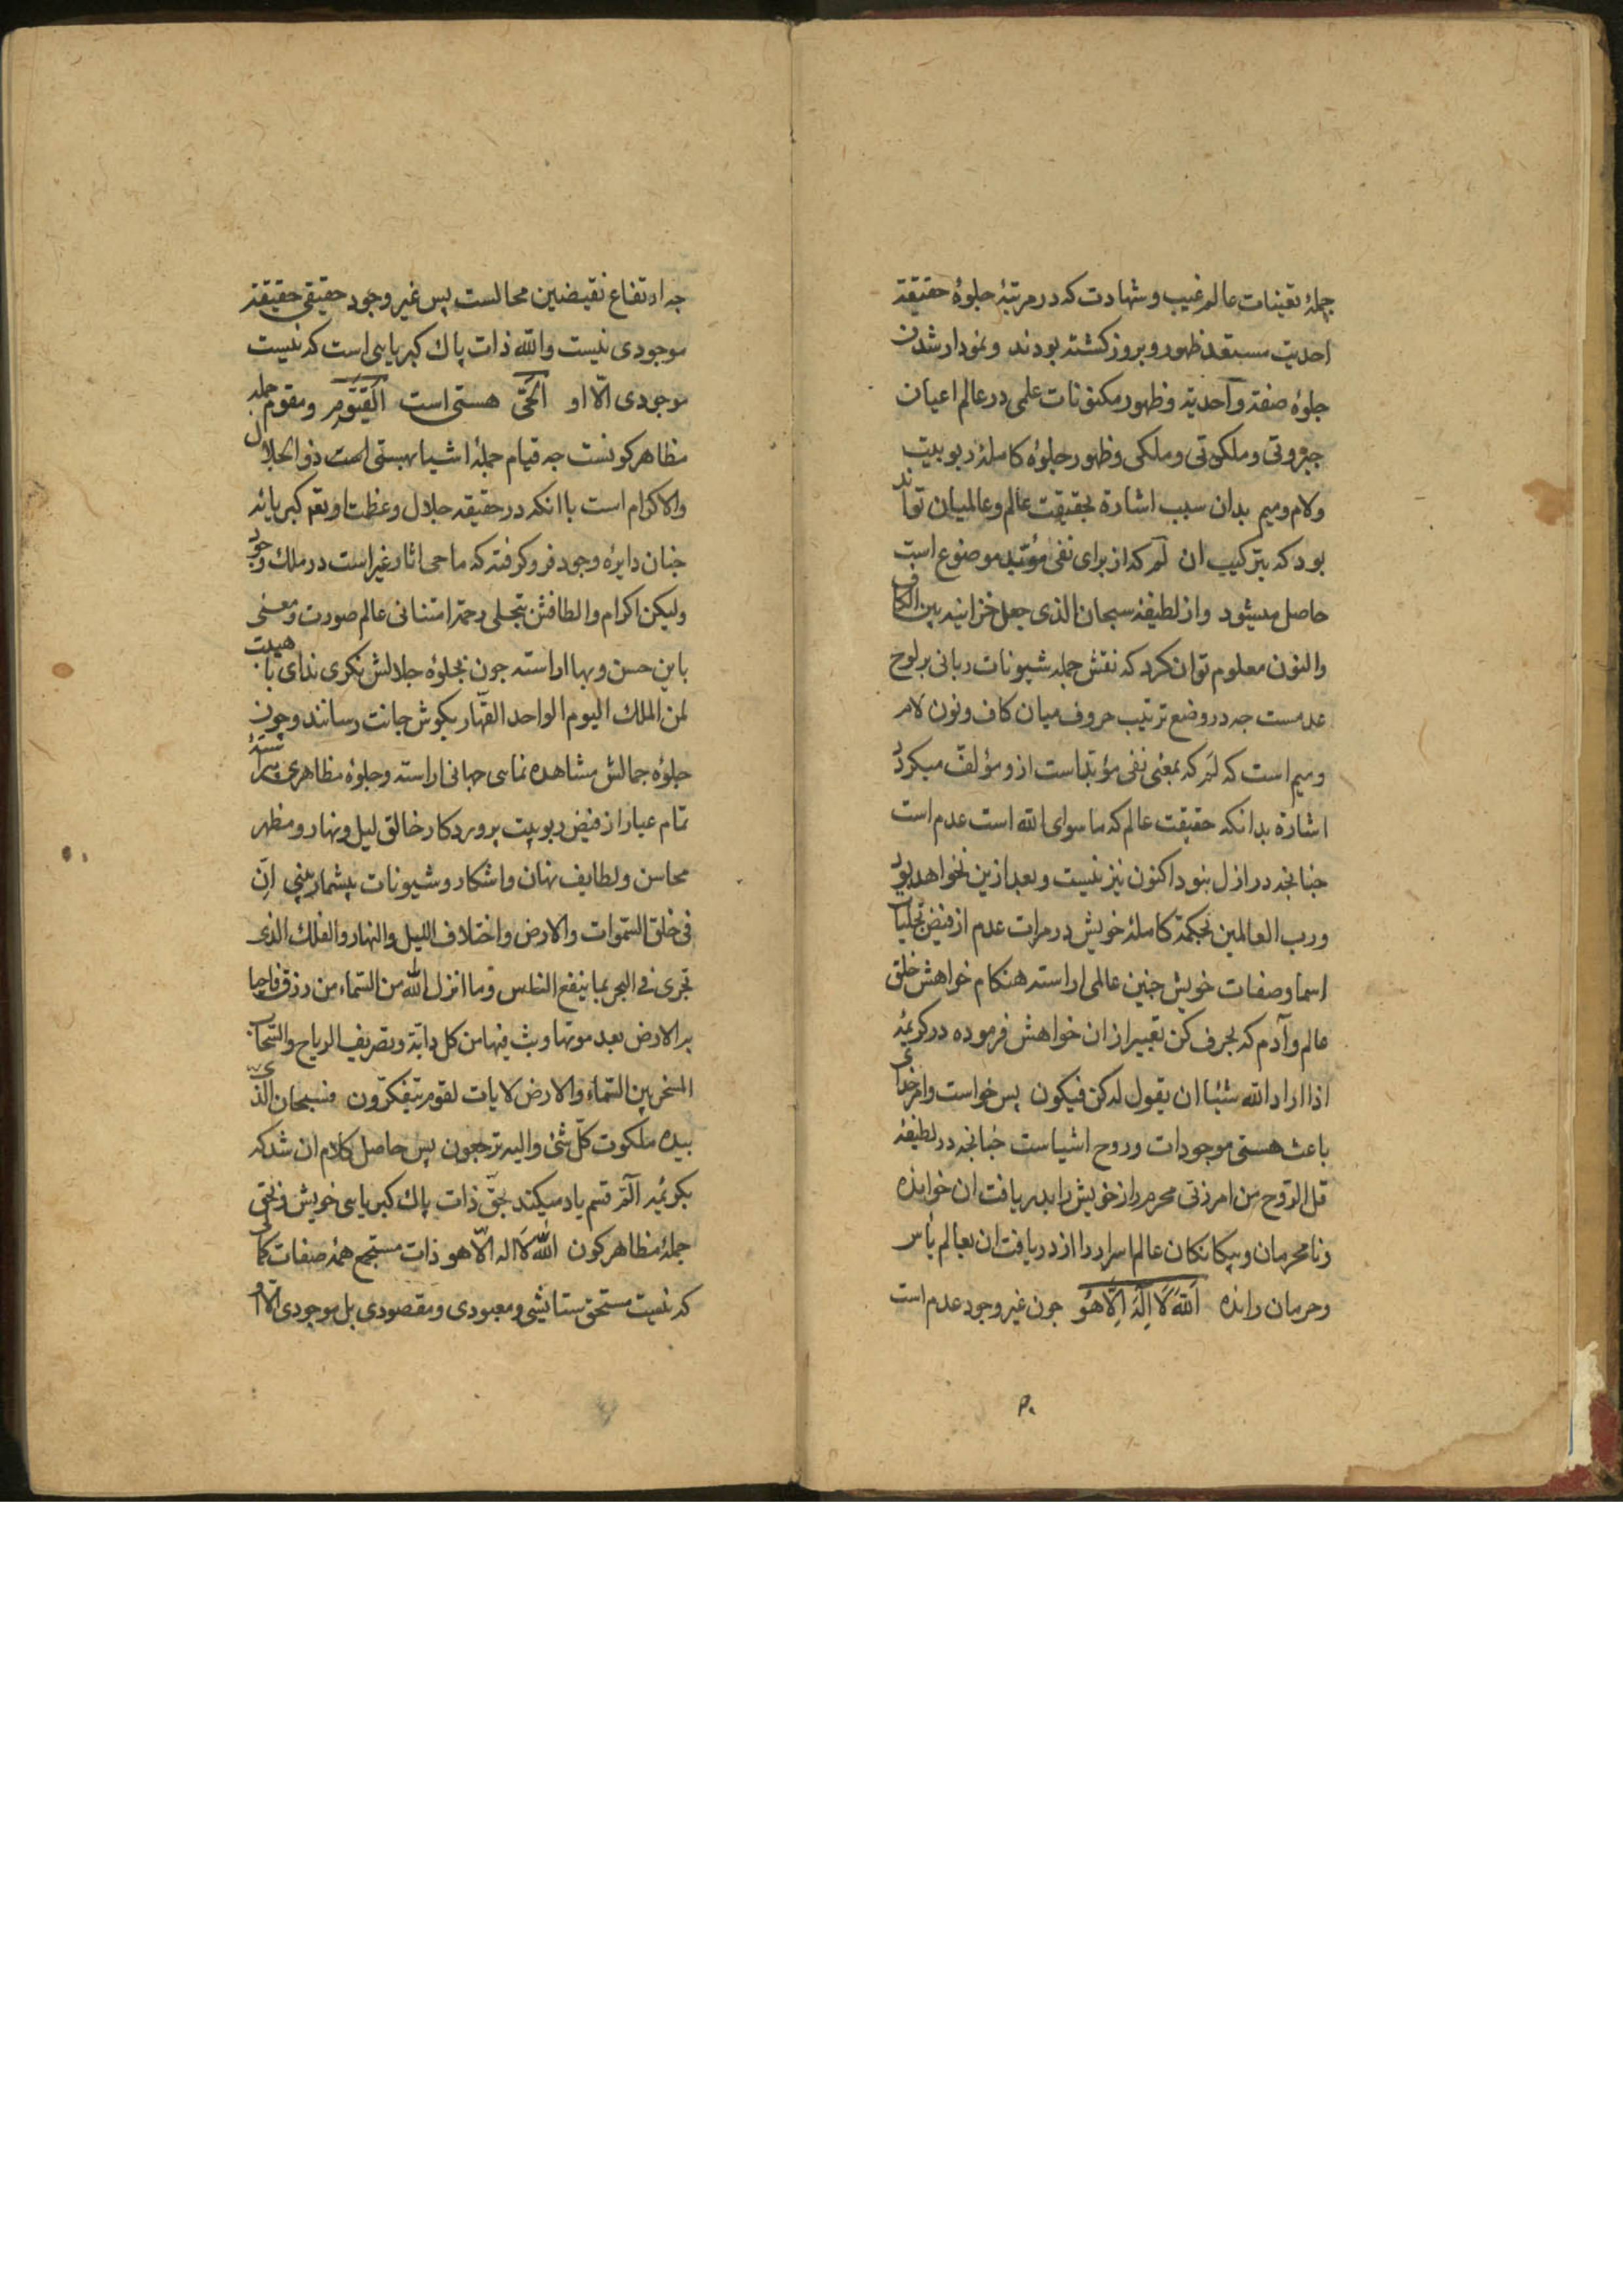 جملهٔ تعینات عالم غیب و شهادت که در مرتبهٔ جلوهٔ حقیقة
احدیت مستعد ظهور و بروز کشته بودند و نمودار شدن
جلوهٔ صفة واحدیة و ظهور مکنونات علمی در عالم اعیان
جبروتی و ملکوتی و ملکی و ظهور جلوهٔ کاملهٔ ربوبیت
ولام و میم بدان سبب اشارة بحقیقت عالم و عالمیان تواند
بود که بترکیب ان لم که از برای نفی مؤبد موضوع است
حاصل میشود واز لطیفهٔ سبحان الذی جعل خزانیه بین الکاف
والنون معلوم توان کرد که نقش جمله شیونات ربانی بر لوح
عدمست جه در وضع ترتیب حروف میان کاف و نون لام
و میم است که لم که بمعنی نفی مؤبد است ازو مؤلف میکردد
اشارة بدانکه حقیقت عالم که ما سوای الله است عدم است
جنانجه در ازل نبود اکنون نیز نیست و بعد ازین نخواهد بود
ورب العالمین بحکمة کاملهٔ خویش در مرات عدم از فیض تجلیات
اسما وصفات خویش جنین عالمی اراسته هنکام خواهش خلق
عالم وآدم که بحرف کن تعبیر از ان خواهش فرموده در کریمهٔ
اذا اراد الله شئیا ان یقول له کن فیکون پس خواست وامر خدای
باعث هستی موجودات و روح اشیاست جنانجه در لطیفهٔ
قل الروح من امر ربی محرم راز خویش را بدریافت ان خوانده
ونا محرمان و بیکانکان عالم اسرار را از دریافت ان بعالم یأس
وحرمان رانده اَللهُ لَا اِلٰهَ اِلَّا هُوَ جون غیر وجود عدم است
۲۰
جه ارتفاع نقیضین محالست پس غیر وجود حقیقی حقیقة
موجودی نیست والله ذات پاك کبریایی است که نیست
موجودی الّا او اَلْحَیُّ هستی است اَلْقَیُّوم و مقوم جمله
مظاهر کونست جه قیام جملهٔ اشیا بهستی است ذو الجلال
والاکرام است با انکه در حقیقه جلال و عظمت او تعم کبریائه
جنان دایرهٔ وجود فرو کرفته که ماحی اثار غیر است در ملك وجود
ولیکن اکرام والطافش بتجلی رحمة امتنانی عالم صورت و معنی
باین حسن و بها اراسته جون بجلوهٔ جلالش نکری ندای با هیبت
لمن الملك الیوم الواحد القهّار بکوش جانت رسانند و جون
جلوهٔ جمالش مشاهده نمایی جهانی اراسته و جلوهٔ مظاهری پیراستهٔ
تمام عیار از فیض ربوبیت پروردکار خالق لیل و نهار و مظهر
محاسن و لطایف نهان و اشکار و شیونات بیشمار بینی اِنَّ
فی خلق السّموات والارض واختلاف اللیل والنهار والفلك الذی
تجری فی البحر بما ینفع الناس وما انزل الله من السّماء من رزق فاحیا
به الارض بعد موتها وبث فیها من کل دابّة وتصریف الریاح والسّحاب
المسخر بین السّماء والارض لایات لقوم یتفکّرون فسبحان الّذی
بیده ملکوت کلّ شئ والیه ترجعون پس حاصل کلام ان شد که
بکریمهٔ الٓمّ قسم یاد میکند بحقّ ذات پاك کبریایی خویش و بحق
جملهٔ مظاهر کون اللّٰه لَا اله الّا هو ذات مستجمع همهٔ صفات کمالی
که نیست مستحق ستایشی و معبودی و مقصودی بل موجودی الّا او